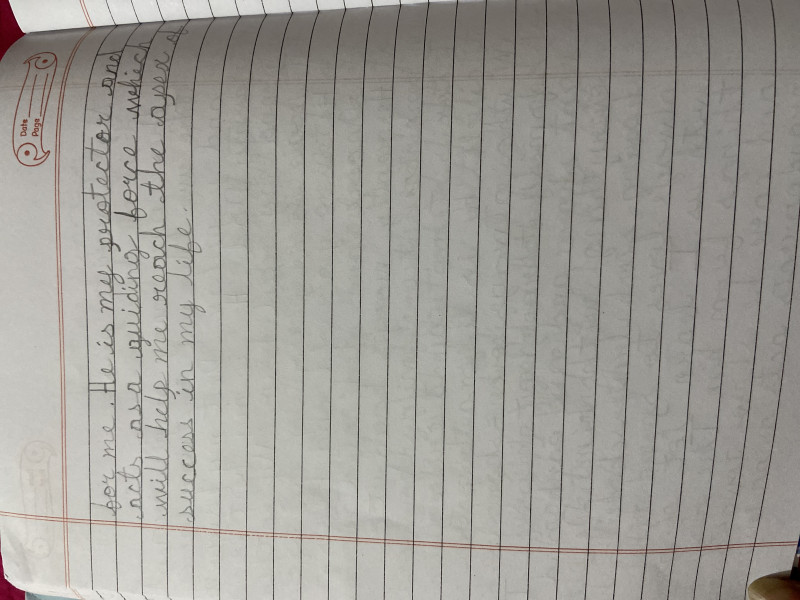 Date
Page
for me. He is my protector and
acts as a guiding force which
will help me reach the apex of
success in my life.